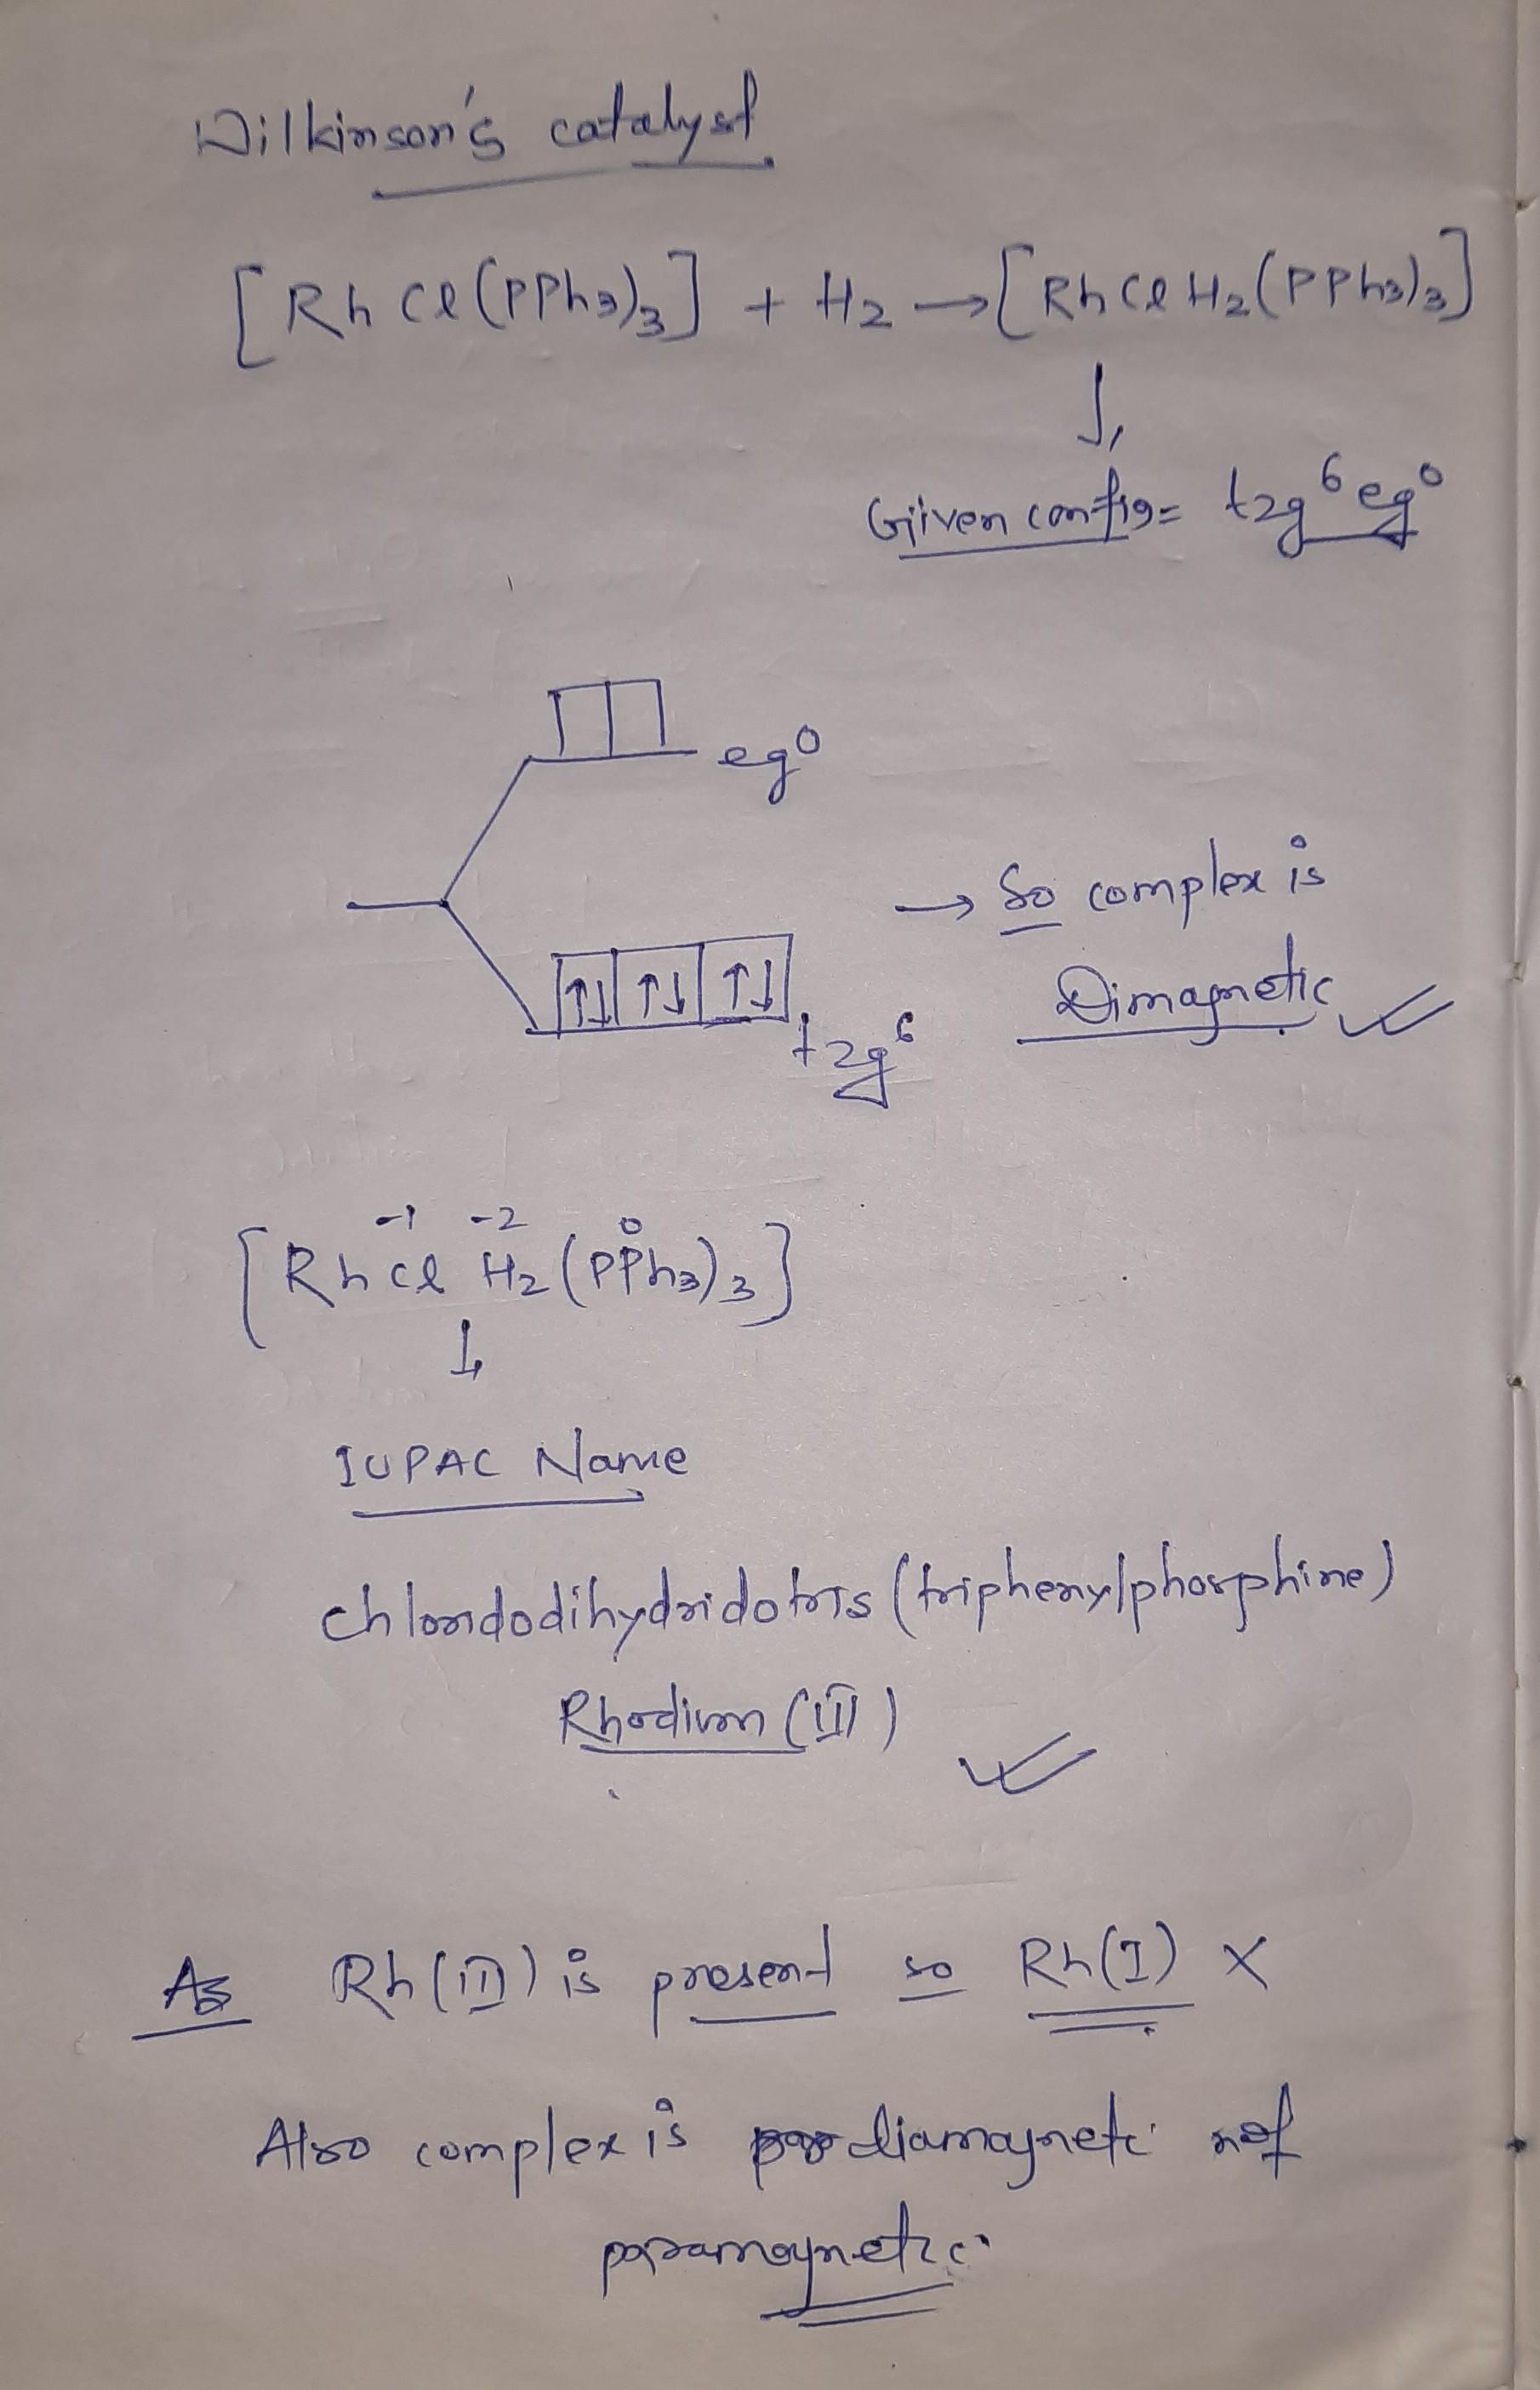 Wilkinson's catalyst
[RhCl(PPh3)3] + H2 → [RhClH2(PPh3)3]
↓
Given config= t2g⁶ eg⁰
eg⁰
→ So complex is
Dimagnetic
↑↓ ↑↓ ↑↓
t2g⁶
-1 -2 0
[RhClH2(PPh3)3]
↓
IUPAC Name
chloridodihydridotris(triphenylphosphine)
Rhodium (III)
As Rh(III) is present so Rh(I) ×
Also complex is diamagnetic not
paramagnetic